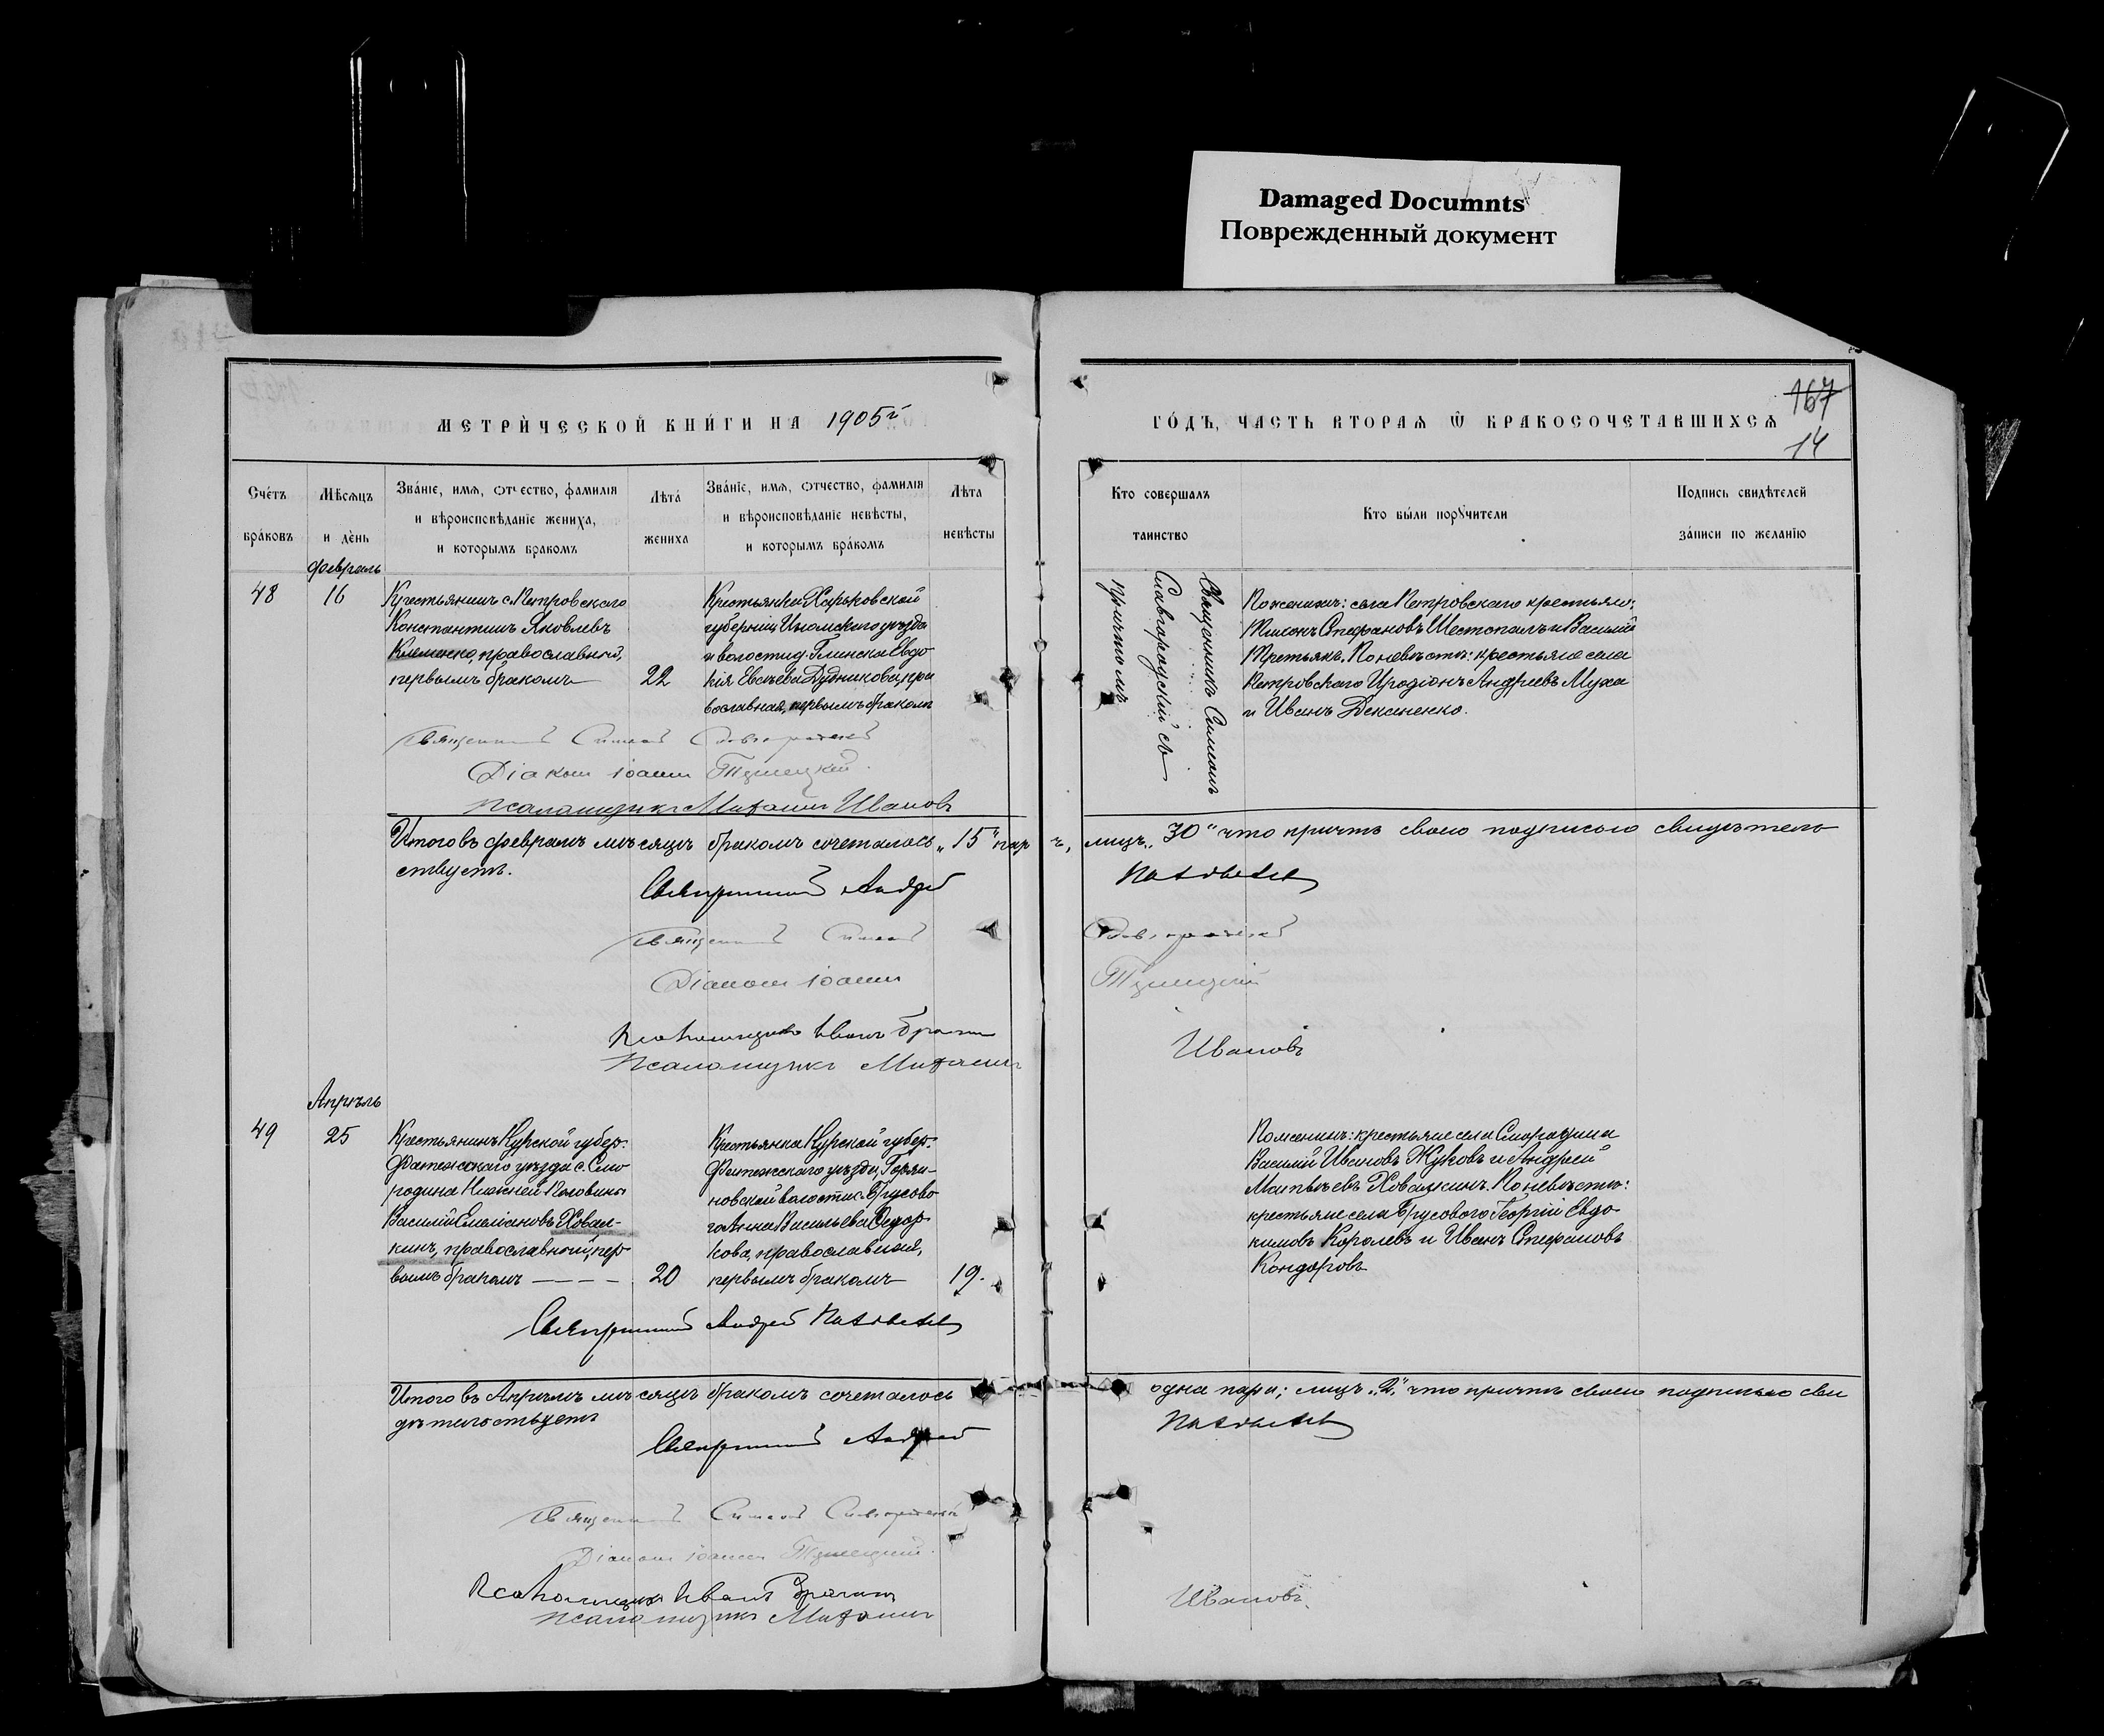 Damaged Documnts
Поврежденный документ
МЕТРИ́ЧЕСКОЙ КНИ́ГИ НА 1905й
ГО́ДЪ, ЧАСТЬ ВТОРАѦ Ѿ БРАКОСОЧЕТАВШИХСѦ
167
14
Счётъ бра́ковъ
Мѣсѧцъ и де́нь
Зва́нїе, имѧ, ѻтчество, фамилїѧ
и вѣроисповѣданїе жениха,
и которымъ бракомъ
Лѣта́ жениха
Зва́нїе, имѧ, ѻтчество, фамилїѧ
и вѣроисповѣданїе невѣсты,
и которымъ бра́комъ
Лѣта невѣсты
Кто совершалъ таинство
Кто бы́ли порꙋчители
Подпись свидѣтелей
за́писи по желанїю
Февраль
48
16
Крестьянинъ с. Петровскаго
Константинъ Яковлевъ
Клименко, православный,
первымъ бракомъ
22
Крестьянка Харьковской
губерніи Изюмскаго уѣзда
и волости д. Глинска Евдо
кія Евсѣева Дудникова, пра
вославная, первымъ бракомъ
Священникъ Симеонъ
Славгородскій съ
причтомъ
По женихѣ: села Петровскаго крестьяне:
Тихонъ Стефановъ Шестопалъ и Василій
Третьякъ. По невѣстѣ: крестьяне села
Петровскаго Иродіонъ Андреевъ Муха
и Иванъ Деканенко.
Священникъ Симеонъ Славгородскій
Діаконъ Іоаннъ
Псаломщикъ Михаилъ Ивановъ
Итого въ февралѣ мѣсяцѣ бракомъ сочеталось „15" паръ, лицъ „30" что причтъ своею подписью свидѣтель
ствуетъ.
Священникъ Андрей
Священникъ Симеонъ Славгородскій
Діаконъ Іоаннъ
Псаломщикъ Иванъ
Псаломщикъ Михаилъ Ивановъ
Апрѣль
49
25
Крестьянинъ Курской губер.
Фатежскаго уѣзда с. Смо
родина Нижней Половины
Василій Емеліановъ Ховал-
кинъ, православный, пер
вымъ бракомъ
20
Крестьянка Курской губер.
Фатежскаго уѣзда, Горян-
новской волости с. Брусово
го Анна Васильева
кова, православная,
первымъ бракомъ
19.
По женихѣ: крестьяне села Смородина
Василій Ивановъ Жуковъ и Андрей
Матвѣевъ Ховалкинъ. По невѣстѣ:
крестьяне села Брусового Георгій Евдо
кимовъ Королевъ и Иванъ Стефановъ
Кондоровъ
Священникъ Андрей
Итого въ Апрѣлѣ мѣсяцѣ бракомъ сочеталось одна пара; лицъ „2," что причтъ своею подписью сви
дѣтельствуетъ
Священникъ Андрей
Священникъ Симеонъ Славгородскій
Діаконъ Іоаннъ
Псаломщикъ Иванъ
Псаломщикъ Михаилъ Ивановъ